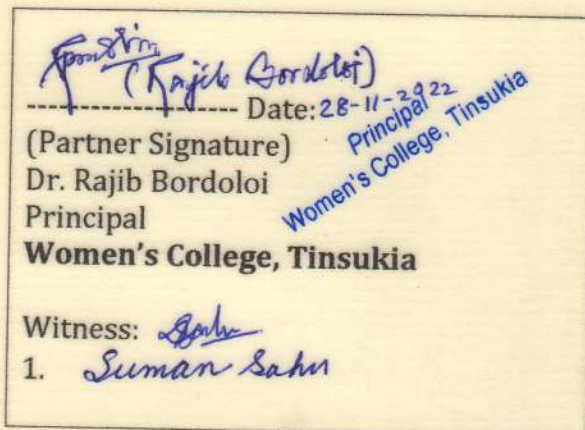 (Rajib Bordoloi)
------------------- Date: 28-11-2022
Principal
Women's College, Tinsukia
(Partner Signature)
Dr. Rajib Bordoloi
Principal
Women's College, Tinsukia
Witness:
1. Suman Sahu